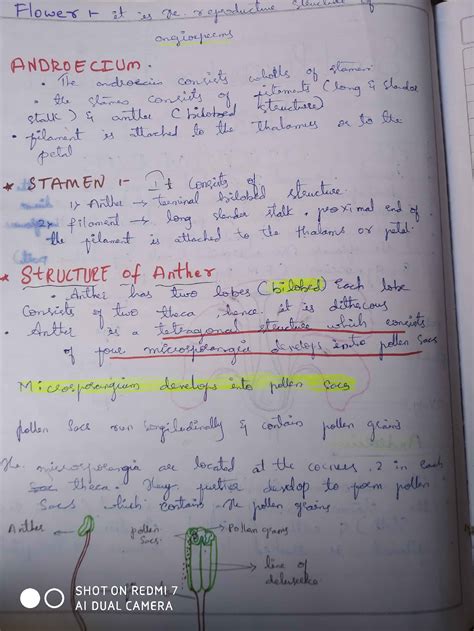 Flower :- it is the reproductive structure of
angiosperms
ANDROECIUM.
• The androecium consists wholls of stamen
• the stamen consists of filaments (long & slender
stalk) & anther (bilobed structure)
• filament is attached to the thalamus or to the
petal
* STAMEN :- It consists of
1) Anther → terminal bilobed structure.
2) filament → long slender stalk. proximal end of
the filament is attached to the thalams or petal.
* STRUCTURE of Anther
• Anther has two lobes (bilobed) Each lobe
consists of two theca hence it is dithecous
• Anther is a tetragonal structure which consists
of four microsporangia develops into pollen sacs
Microsporangium develops into pollen sacs
pollen sacs run longitudinally & contain pollen grains
The microsporangia are located at the corners, 2 in each
theca. They further develop to form pollen
sacs which contains the pollen grains
Anther
pollen sacs
Pollen grains
line of
SHOT ON REDMI 7
AI DUAL CAMERA